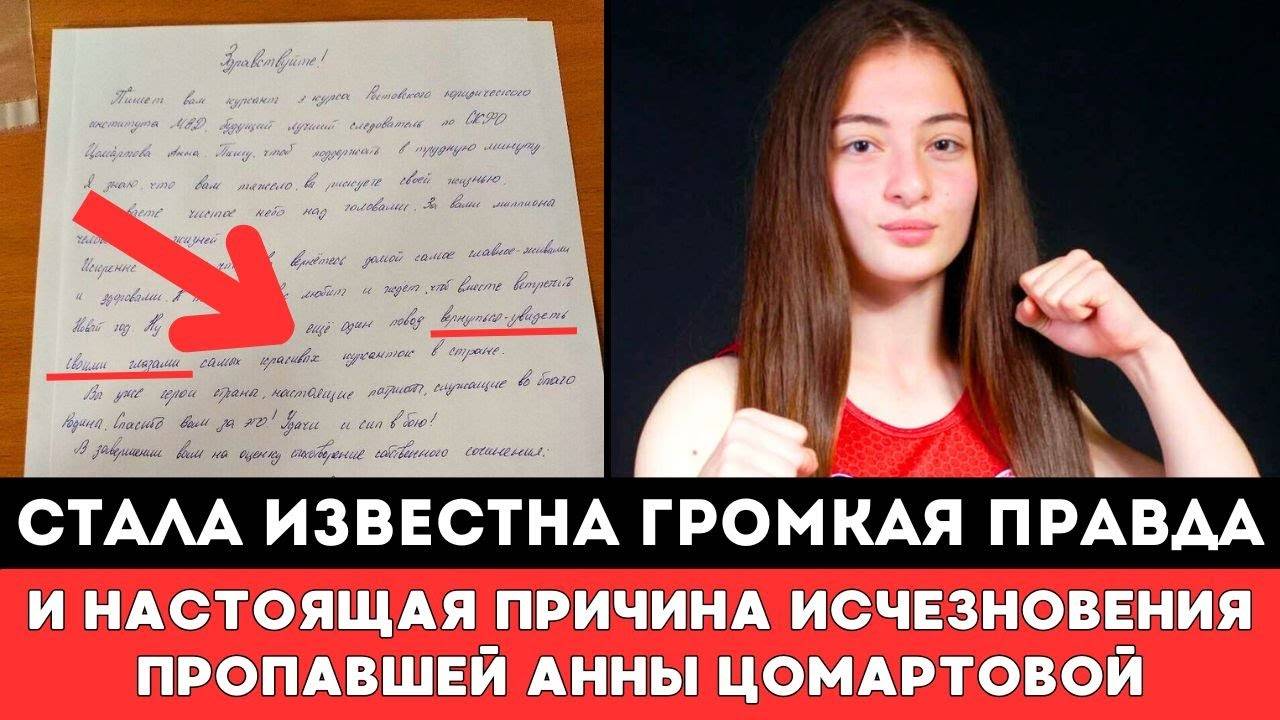 Здравствуйте!
Пишет вам курсант 3 курса Ростовского юридического
института МВД, будущий лучший следователь по СКФО
Цомартова Анна. Пишу, чтоб поддержать в трудную минуту
Я знаю, что вам тяжело, вы рискуете своей жизнью,
чистое небо над головами. За вами миллионы
жизней
Искренне вернётесь домой самое главное-живыми
и здоровыми. А любит и ждет, чтоб вместе встретить
Новый год. Ну ещё один повод вернуться-увидеть
своими глазами самых красивых курсанток в стране.
Вы уже герои страны, настоящие патриоты, служащие во благо
Родины. Спасибо вам за это! Удачи и сил в бою!
В завершении вам на оценку стихотворение собственного сочинения:
СТАЛА ИЗВЕСТНА ГРОМКАЯ ПРАВДА
И НАСТОЯЩАЯ ПРИЧИНА ИСЧЕЗНОВЕНИЯ
ПРОПАВШЕЙ АННЫ ЦОМАРТОВОЙ